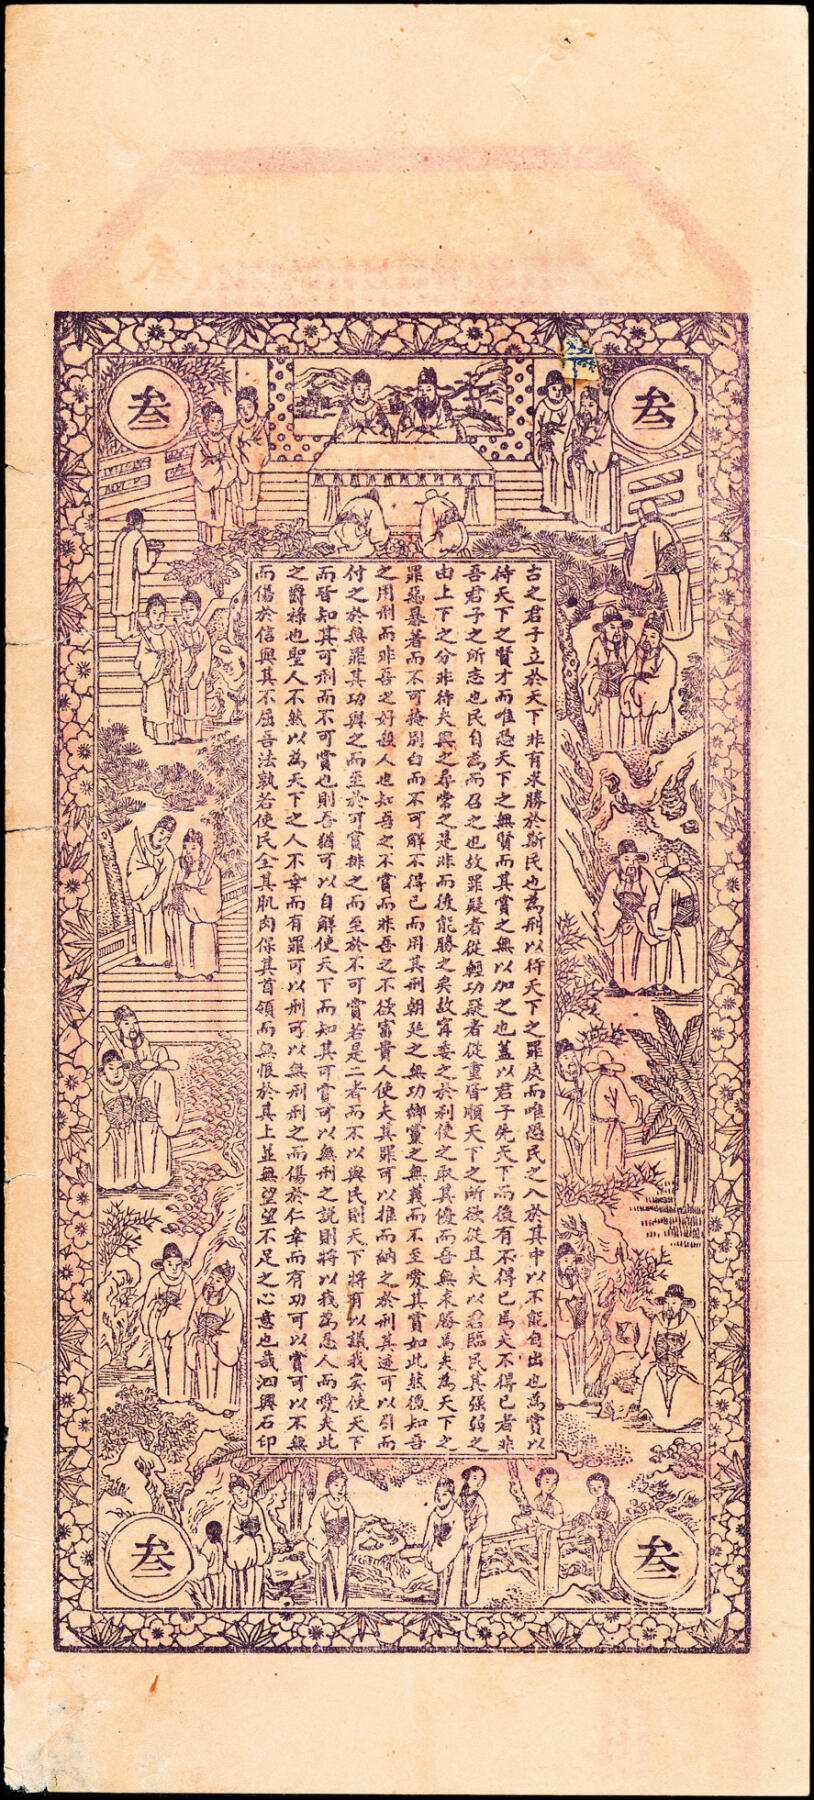 叁
叁
古之君子立於天下非有求勝於斯民也為刑以待天下之罪戾而唯恐民之入於其中以不能自出也為賞以
待天下之賢才而唯恐天下之無賢而其賞之無以加之也蓋以君子先天下而後有不得已焉夫不得已者非
吾君子之所志也民自為而召之也故罪疑者從輕功疑者從重皆順天下之所欲從且夫以君臨民其强弱之
由上下之分非待夫與之尋常之是非而後能勝之矣故寧委之於利使之取其優而吾無求勝焉夫為天下之
罪惡暴著而不可掩別白而不可解不得已而用其刑朝廷之無功鄉黨之無義而不至愛其賞如此然後知吾
之用刑而非吾之好殺人也知吾之不賞而非吾之不欲富貴人使夫其罪可以推而納之於刑其迹可以引而
付之於無罪其功與之而至於可賞排之而至於不可賞若是二者而不以與民則天下將有以議我矣使天下
而皆知其可刑而不可賞也則吾猶可以自解使天下而知其可賞可以無刑之說則將以我為忍人而愛夫此
之爵祿也聖人不然以為天下之人不幸而有罪可以刑可以無刑刑之而傷於仁幸而有功可以賞可以不無
而傷於信與其不屈吾法孰若使民全其肌肉保其首領而無恨於其上並無望望不足之心意也哉泗興石印
叁
叁